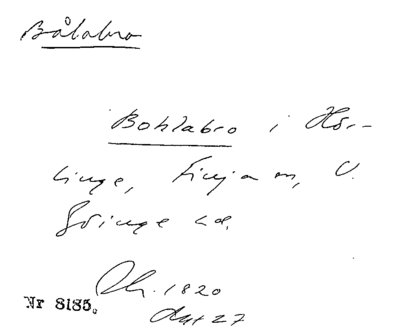 Bålabro
Bohlabro i Hör-
linge, Finja sn, V.
Göinge hd.
Nr 8185. 1820